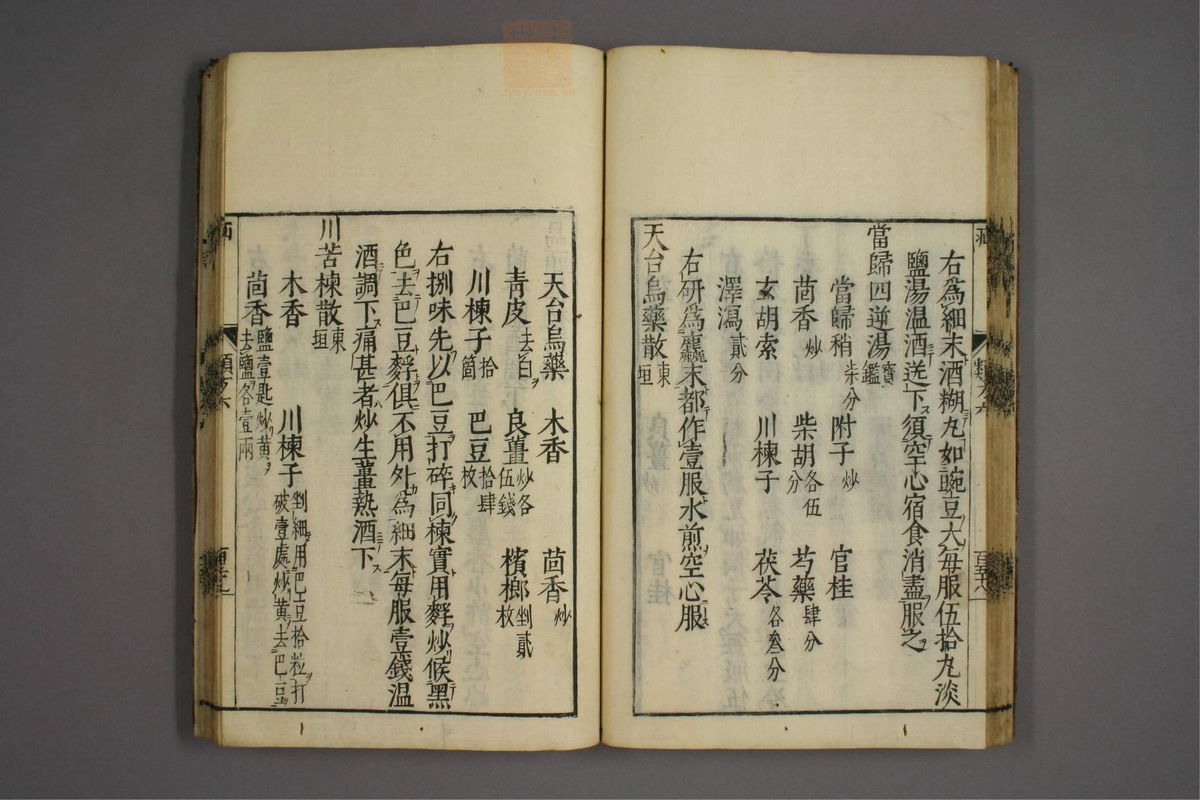 右為細末酒糊丸如豌豆大每服伍拾丸淡
鹽湯温酒送下須空心宿食消盡服之
當歸四逆湯寶鑑
當歸稍柒分 附子炒 官桂
茴香炒 柴胡各伍分 芍藥肆分
玄胡索 川楝子 茯苓各叁分
澤瀉貳分
右研為麤末都作壹服水煎空心服
天台烏藥散東垣
天台烏藥 木香 茴香炒
青皮去白 良薑炒各伍錢 檳榔剉貳枚
川楝子拾箇 巴豆拾肆枚
右捌味先以巴豆打碎同楝實用麩炒候黑
色去巴豆麩俱不用外為細末每服壹錢温
酒調下痛甚者炒生薑熱酒下
川苦楝散東垣
木香 川楝子剉細用巴豆拾粒打破壹處炒黄去巴豆
茴香鹽壹匙炒黄去鹽各壹兩